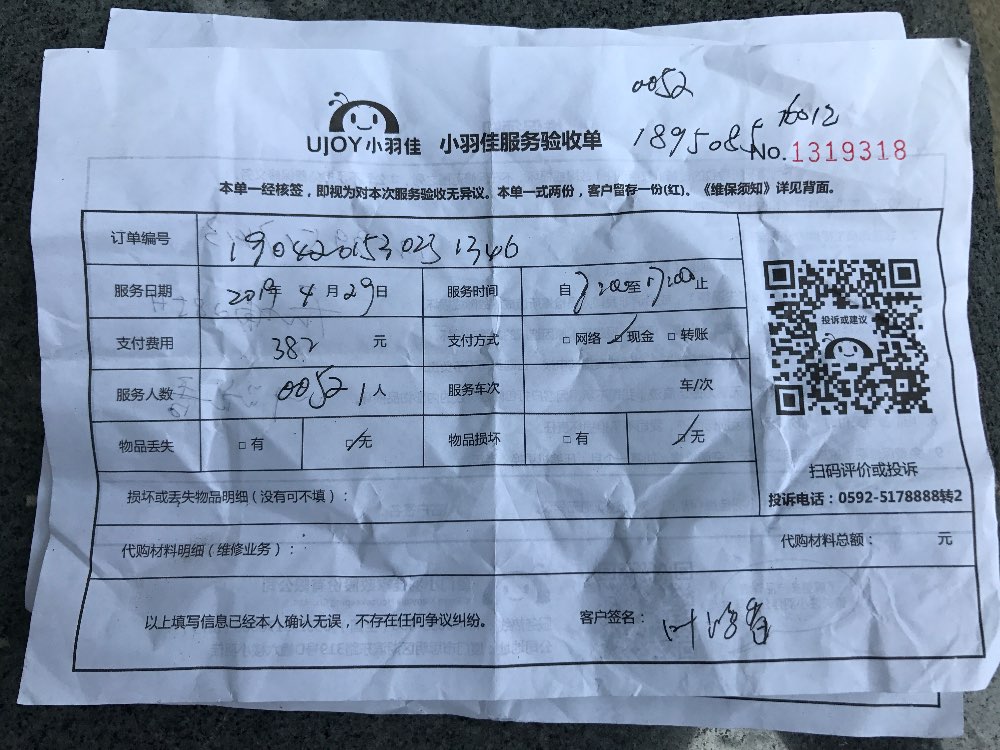 0052
18950856012
UJOY小羽佳 小羽佳服务验收单 No.1319318
本单一经核签，即视为对本次服务验收无异议。本单一式两份，客户留存一份(红)。《维保须知》详见背面。
订单编号 190420153023 1346
服务日期 2019年 4月29日 服务时间 自 至 止
支付费用 382 元 支付方式 □网络 □现金 □转账
服务人数 0052 1人 服务车次 车/次
物品丢失 □有 □无 物品损坏 □有 □无
投诉或建议
扫码评价或投诉
投诉电话：0592-5178888转2
损坏或丢失物品明细（没有可不填）：
代购材料明细（维修业务）： 代购材料总额： 元
以上填写信息已经本人确认无误，不存在任何争议纠纷。 客户签名： 叶